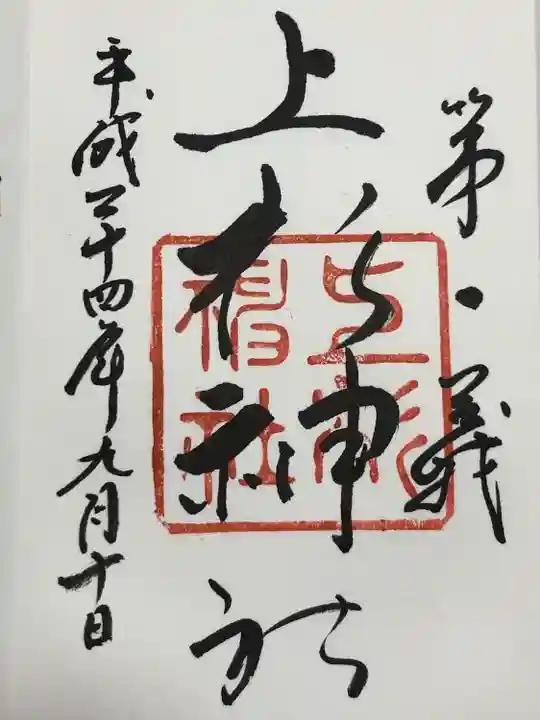 第一義
上杉神社
平成二十四年九月十日
上杉神社